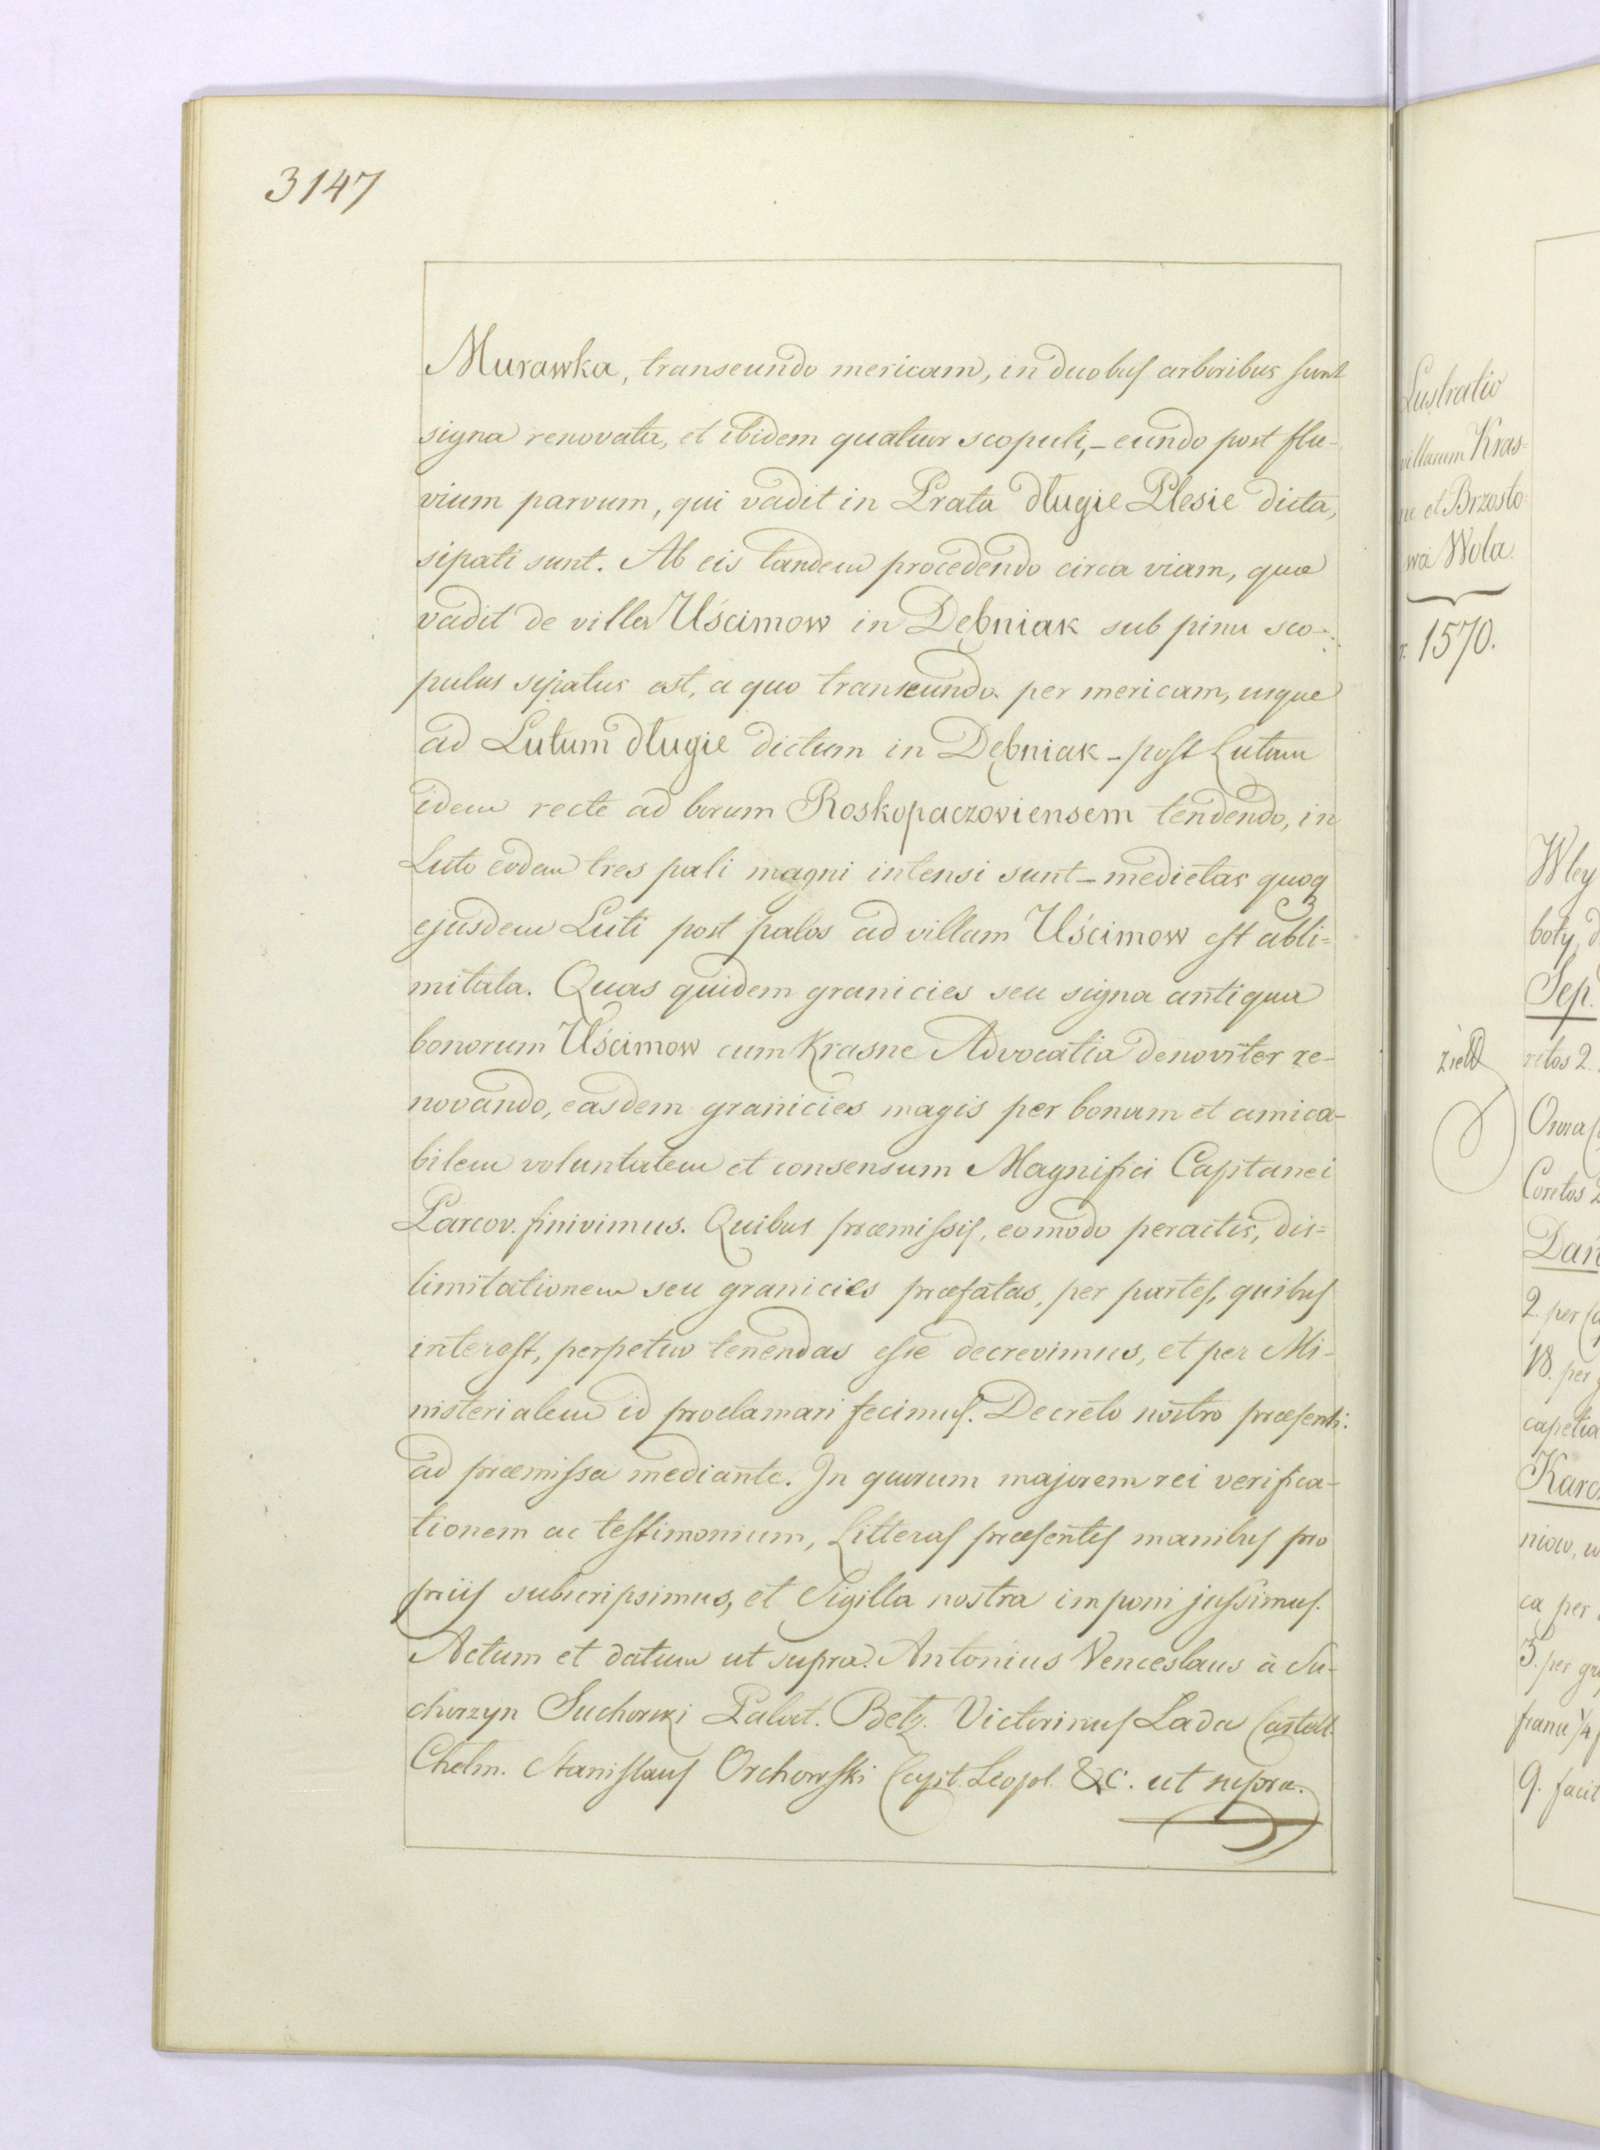 3147
Murawka, transeundo mericam, in duobus arboribus sunt
signa renovata, et ibidem quatuor scopuli,– eundo post flu-
vium parvum, qui vadit in Prata długie Plesie dicta,
sipati sunt. Ab eis tandem procedendo circa viam, quæ
vadit de villa Uścimow in Dębniak sub pinu sco-
pulus sipatus est, a quo transeundo per mericam, usque
ad Lutum długie dictum in Dębniak – post Lutum
idem recte ad borum Roskopaczoviensem tendendo, in
Luto eodem tres pali magni intensi sunt – medietas quoq
ejusdem Luti post palos ad villam Uścimow est abli=
mitata. Quas quidem granicies seu signa antiqua
bonorum Uścimow cum Krasne Advocatia denoviter re-
novando, easdem granicies magis per bonam et amica-
bilem voluntatem et consensum Magnifici Captanei
Parcov. finivimus. Quibus præmissis, eo modo peractis, dis=
limitationem seu granicies præfatas, per partes, quibus
interest, perpetuo tenendas esse decrevimus, et per Mi-
nisterialem id proclamari fecimus. Decreto nostro præsenti
ad præmissa mediante. In quorum majorem rei verifica-
tionem ac testimonium, Litteras præsentes manibus pro
priis subscripsimus, et Sigilla nostra imponi jussimus.
Actum et datum ut supra. Antonius Venceslaus à Su-
chorzyn Suchorski Palat. Belz. Victorinus Lada Castell.
Chelm. Stanislaus Orchowski Capit. Leopol. &c. ut supra.
Lustratio
villarum Kras-
ne et Brzosto-
wa Wola.
1570.
Wley
boty, d
Sep.
retos 2.
Coretos 2
Dan
2. per
18. per
capetia
Karo
niow, w
ca per
3. per gr
franu 1/4
9. facit